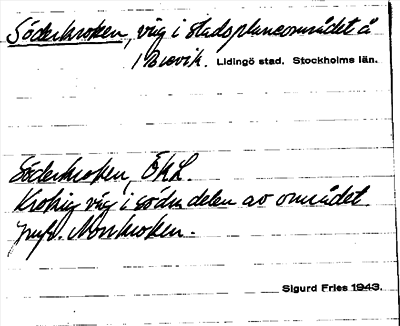 Söderkroken, väg i stadsplaneområdet å
1 Brevik. Lidingö stad. Stockholms län.
Söderkroken, EKL.
Krokig väg i södra delen av området.
Jmfr. Norrkroken.
Sigurd Fries 1943.